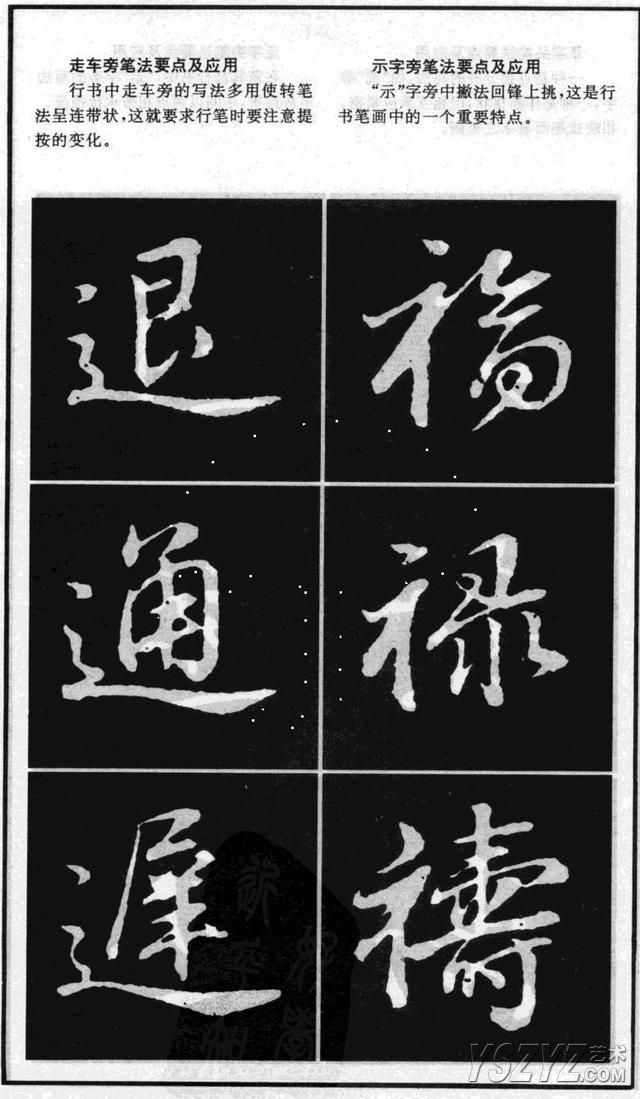 走车旁笔法要点及应用
行书中走车旁的写法多用使转笔
法呈连带状，这就要求行笔时要注意提
按的变化。
示字旁笔法要点及应用
“示”字旁中撇法回锋上挑，这是行
书笔画中的一个重要特点。
退
福
通
禄
遲
禱
YSZYZ艺术
.COM